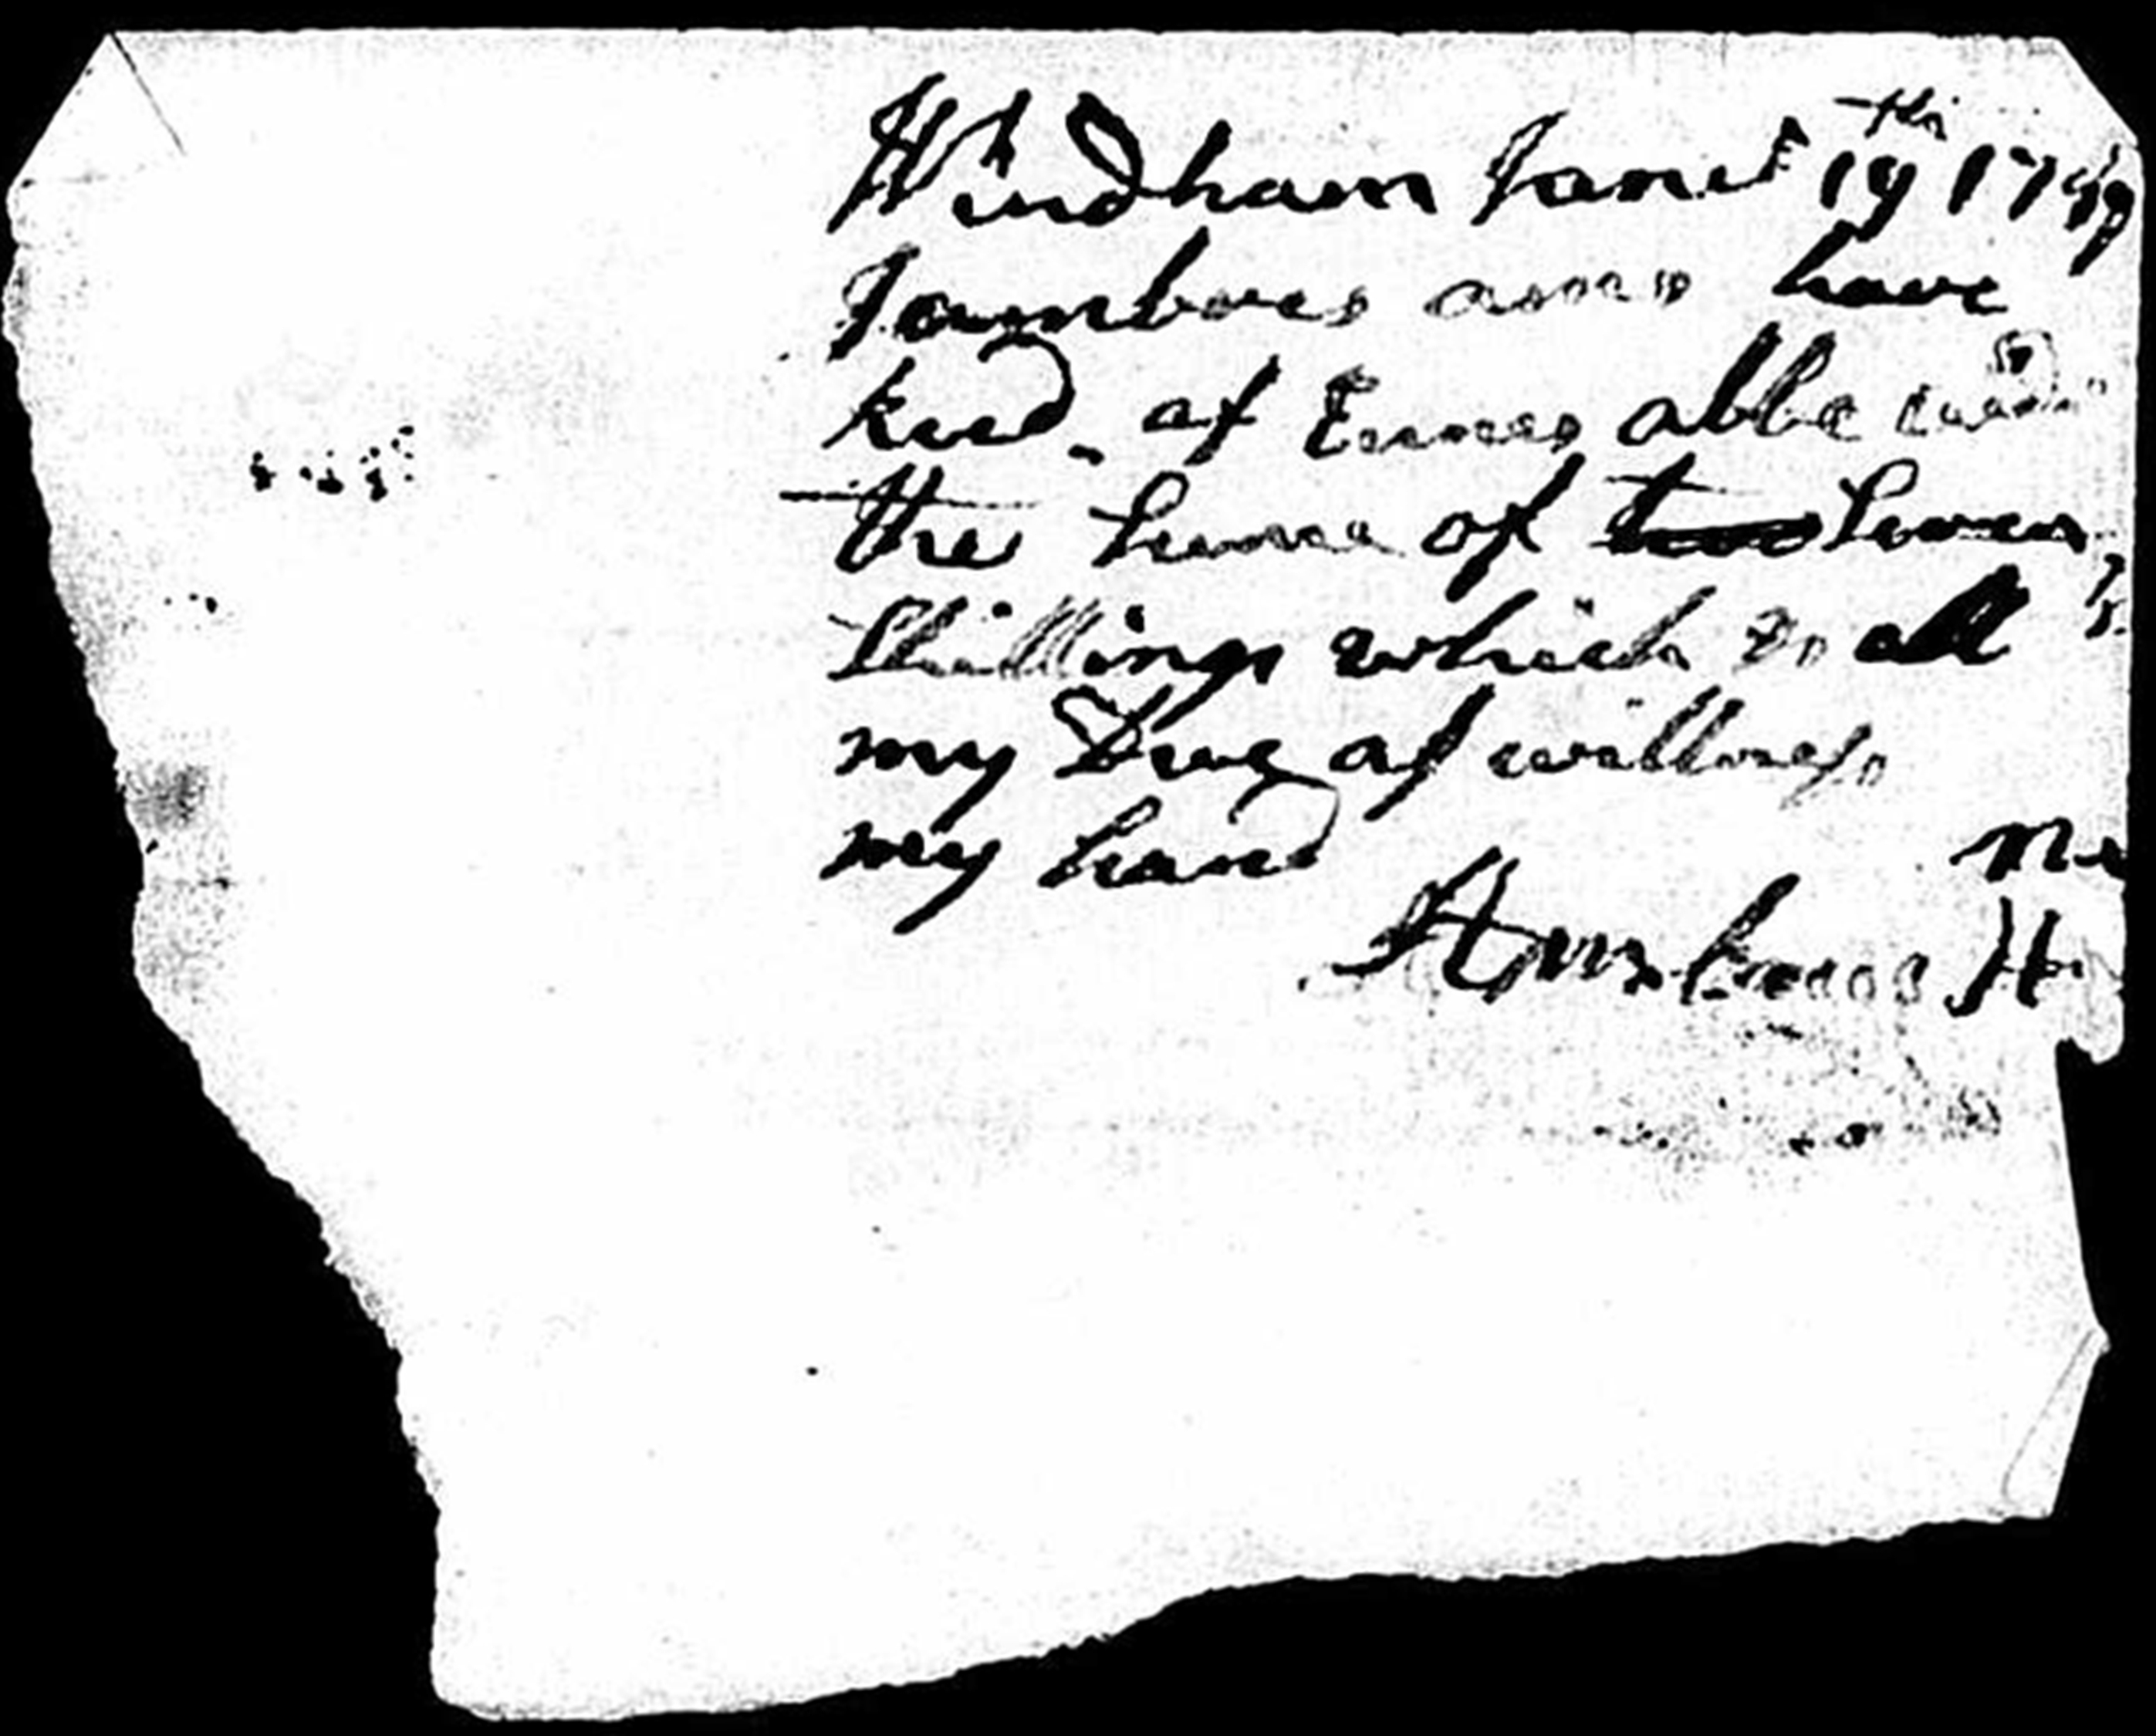 Windham Janr 19th 1749
I ambros ames have
kivd of Ennes abbe
the sume of two seven
Shillings which is all
my Due as wittness
my hand
me
Ambros H